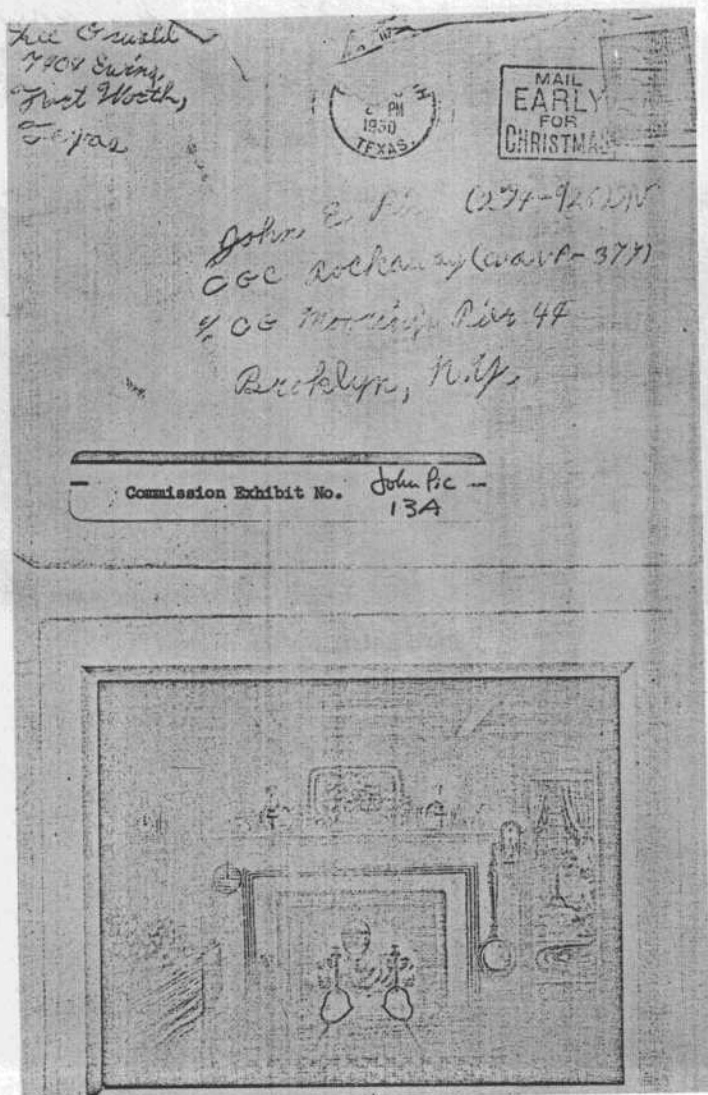 Lee Oswald
7404 Ewing,
Fort Worth,
Texas
PM
1950
TEXAS.
MAIL
EARLY
FOR
CHRISTMAS
John E.
CGC Rockaway (WAVP-377)
% CG Moorings Pier 4
Broklyn, N.Y.
Commission Exhibit No. John Pic
13A